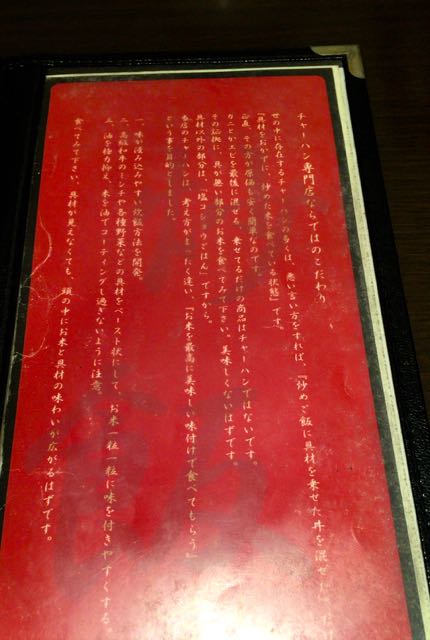 チャーハン専門店ならではのこだわり
世の中に存在するチャーハンの多くは、悪い言い方をすれば、「炒めご飯に具材を乗せた丼を混ぜ
『具材をおかずに、炒めた米を食べている状態』です。
正直、その方が原価も安く簡単なのです。
カニとかエビを最後に混ぜる、乗せてるだけの商品はチャーハンではないです。
その証拠に、具が無い部分のお米を食べてみて下さい、美味しくないはずです。
具材以外の部分は、「塩コショウごはん」ですから。
当店のチャーハンは、考え方がまったく違い、「お米を最高に美味しい味付けで食べてもらう」
という事を目的としました。
一、味が浸み込みやすい炊飯方法を開発。
二、高級和牛のミンチや各種野菜などの具材をペースト状態にして、お米一粒一粒に味を付きやすくする。
三、油を極力抑え、米を油でコーティングし過ぎないように注意。
食べてみて下さい、具材が見えなくても、頭の中にお米と具材の味わいが広がるはずです。